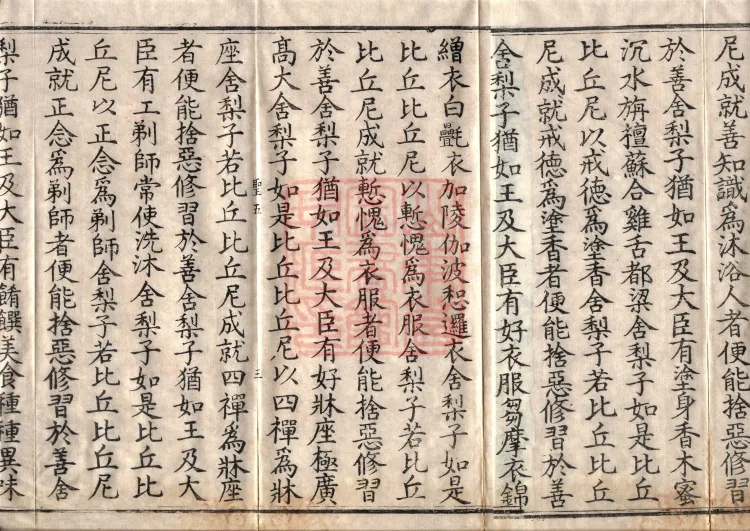 尼成就善知識爲沐浴人者便能捨惡修習
於善舍梨子猶如王及大臣有塗身香木蜜
沉水旃檀蘇合雞舌都梁舍梨子如是比丘
比丘尼以戒德爲塗香舍梨子若比丘比丘
尼成就戒德爲塗香者便能捨惡修習於善
舍梨子猶如王及大臣有好衣服芻摩衣錦
繒衣白㲲衣加陵伽波惒邏衣舍梨子如是
比丘比丘尼以慙愧爲衣服舍梨子若比丘
比丘尼成就慙愧爲衣服者便能捨惡修習
於善舍梨子猶如王及大臣有好牀座極廣
髙大舍梨子如是比丘比丘尼以四禪爲牀
聖五 三
座舍梨子若比丘比丘尼成就四禪爲牀座
者便能捨惡修習於善舍梨子猶如王及大
臣有工剃師常使洗沐舍梨子如是比丘比
丘尼以正念爲剃師舍梨子若比丘比丘尼
成就正念爲剃師者便能捨惡修習於善舍
梨子猶如王及大臣有餚饌美食種種異味